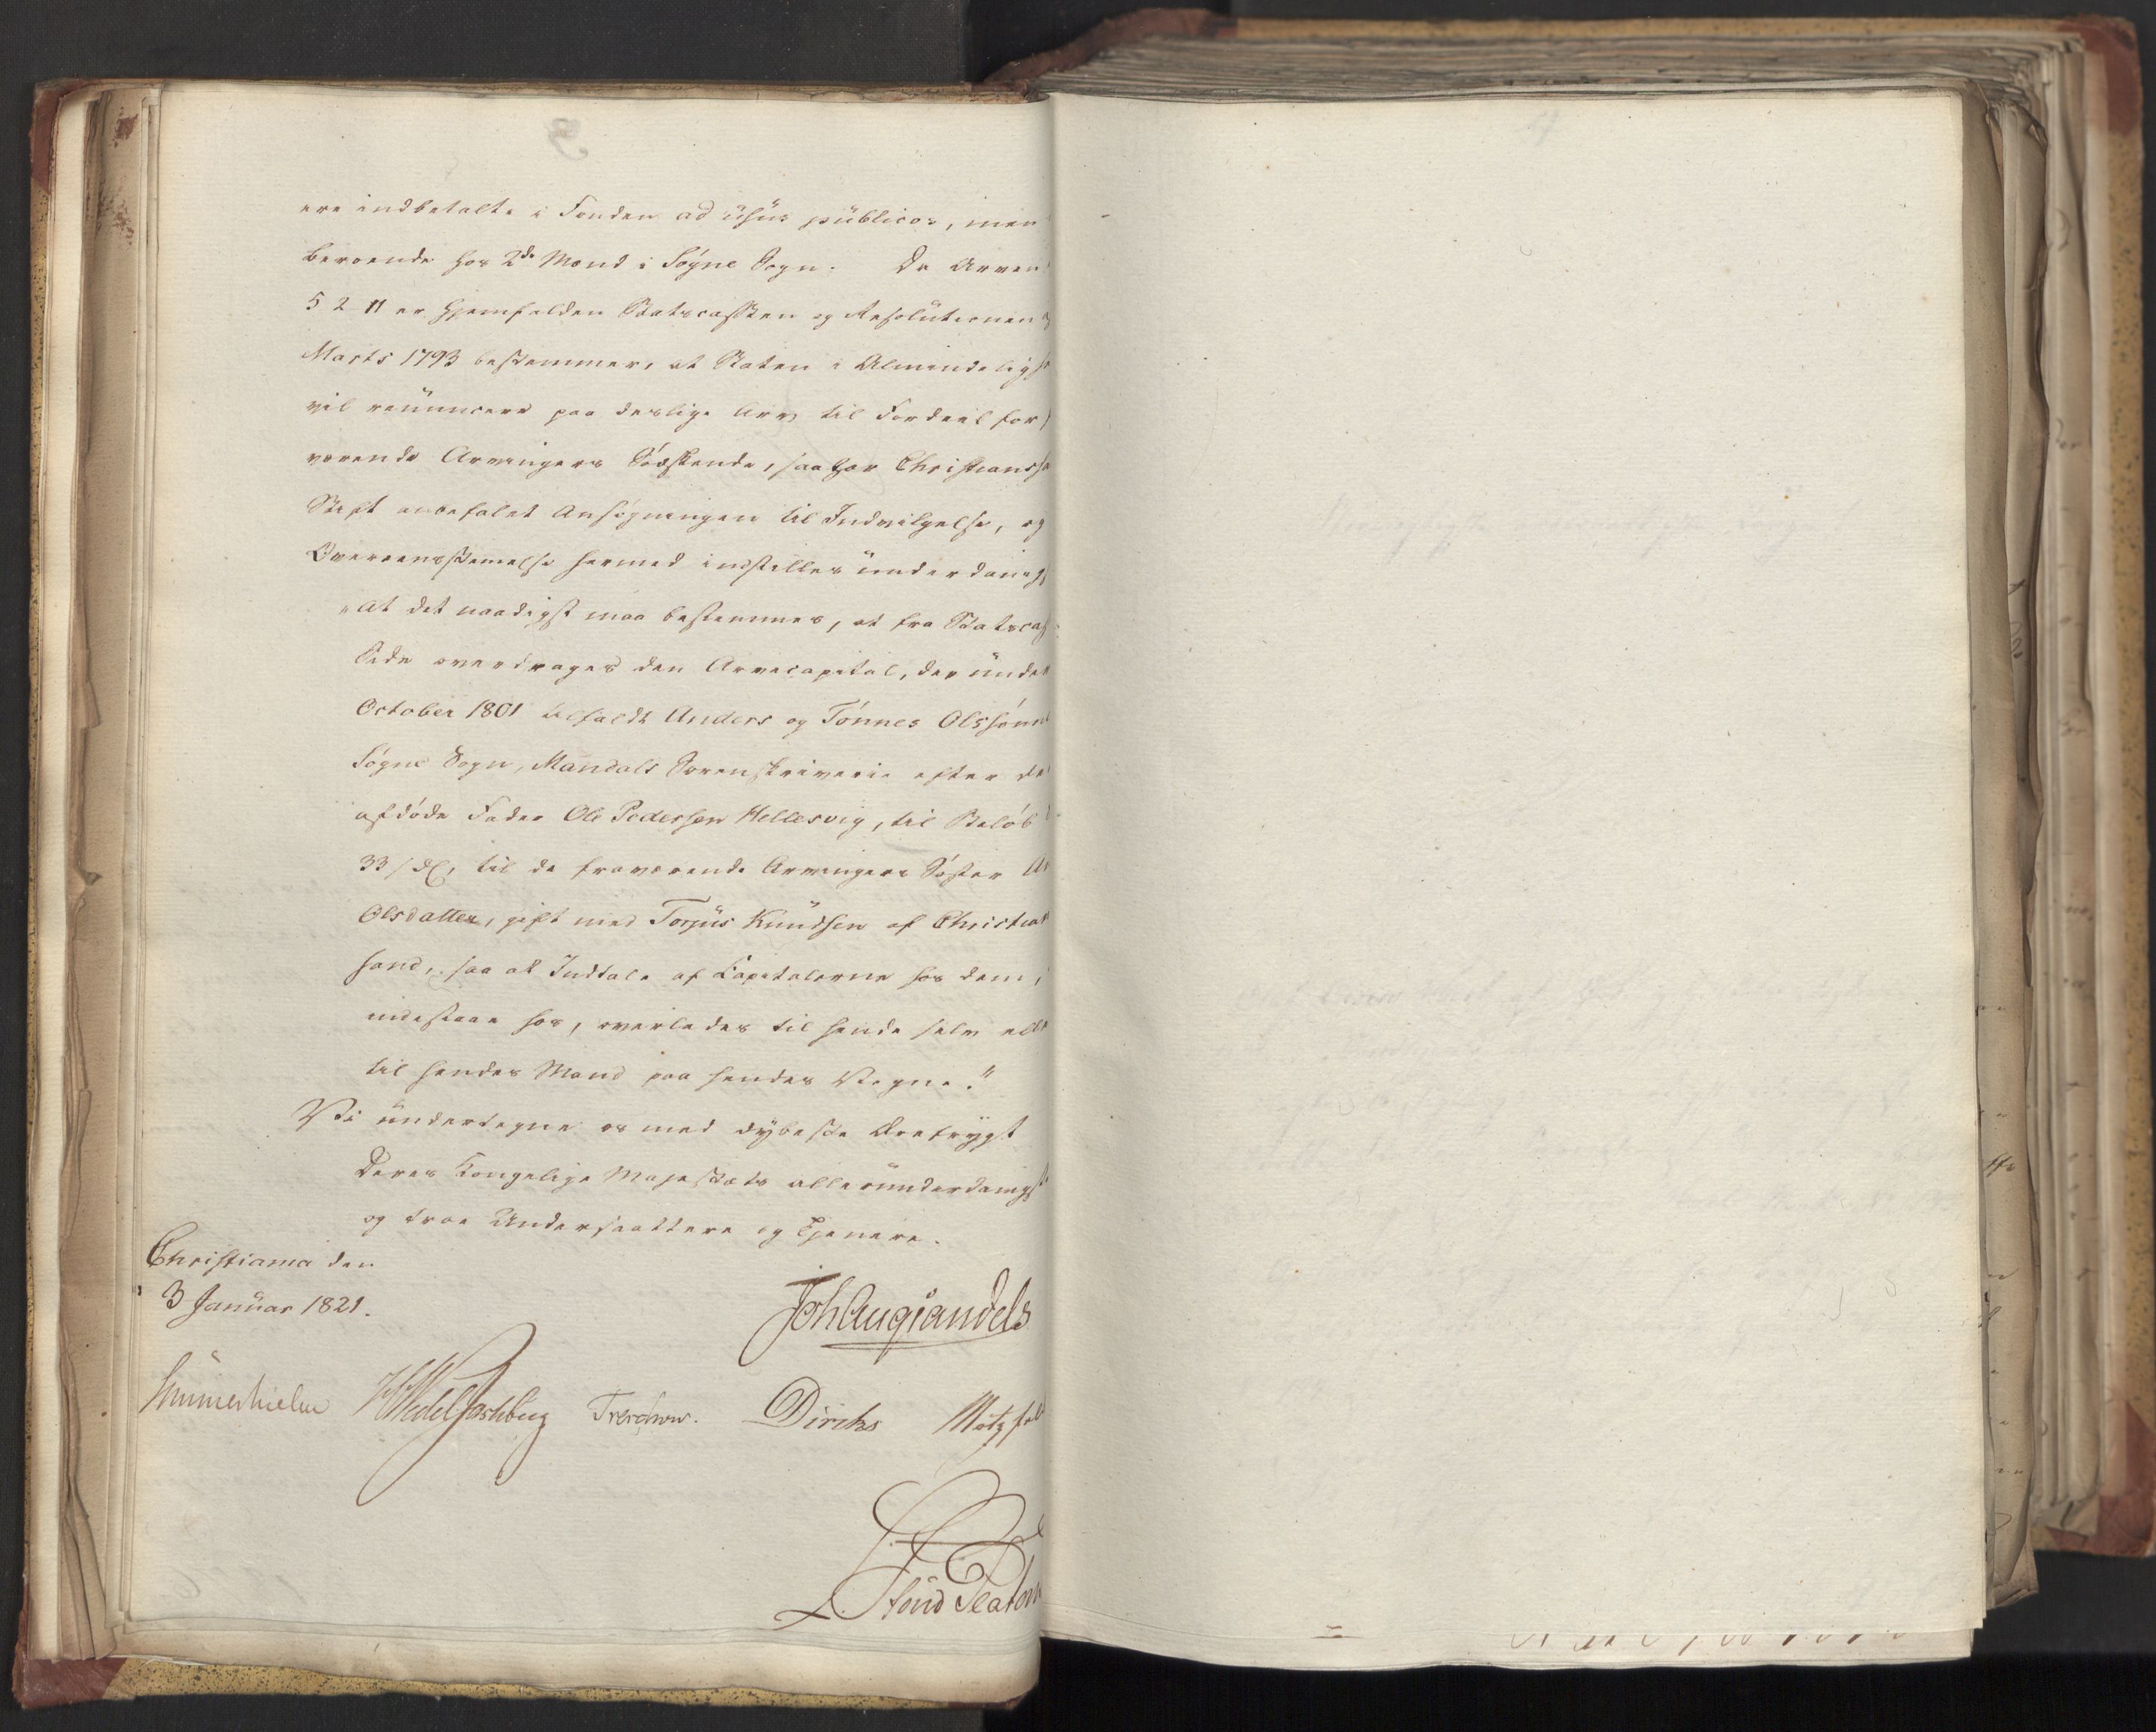 ere indbetalte i Fonden ad usus publicos, men
beroende hos 2de Mænd i Søgne Sogn. Da Arven
5 2 11 er hjemfalden Statscassen og Resolutionen
Marts 1793 bestemmer, at Staten i Almindeligh
vil renuncere paa deslige Arv til Fordeel for
værende Arvingers Sødskende, saa har Christians
Stift anbefalet Ansøgningen til Indvilgelse, og
Overeensstemelse hermed indstilles underdanigst
"At det naadigst maa bestemmes, at fra Statscas
Side overdrages den Arvecapital, der under
October 1801 tilfaldt Anders og Tønnes Olssønn
Søgne Sogn, Mandals Sorenskriverie efter de
afdøde Fader Ole Pedersen Hellesvig, til Beløb
33 til de fraværende Arvingers Søster
Olsdatter, gift med Torjus Knudsen af Christian
sand, saa at Indtale af Capitalerne hos dem,
indestaae hos, overlades til hende selv elle
til hendes Mand paa hendes Vegne."
Vi undertegne os med dybeste Ærefrygt
Deres Kongelige Majestæts allerunderdanigste
og troe Undersaattere og Tjenere.
Christiania den
3 Januar 1821.
Joh Aug Sandels
Sommerhielm HWedel Jarlsberg Treschow. Diriks Motzfeld
L. Stoud Platou